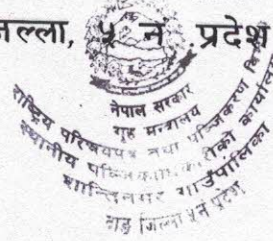 जिल्ला, ५ नं. प्रदेश
नेपाल सरकार
गृह मन्त्रालय
राष्ट्रिय परिचयपत्र तथा पञ्जिकरण वि
स्थानीय पञ्जिकाधिकारीको कार्याल
शान्तिनगर गाउँपालिका
दाङ जिल्ला ५ नं प्रदेश